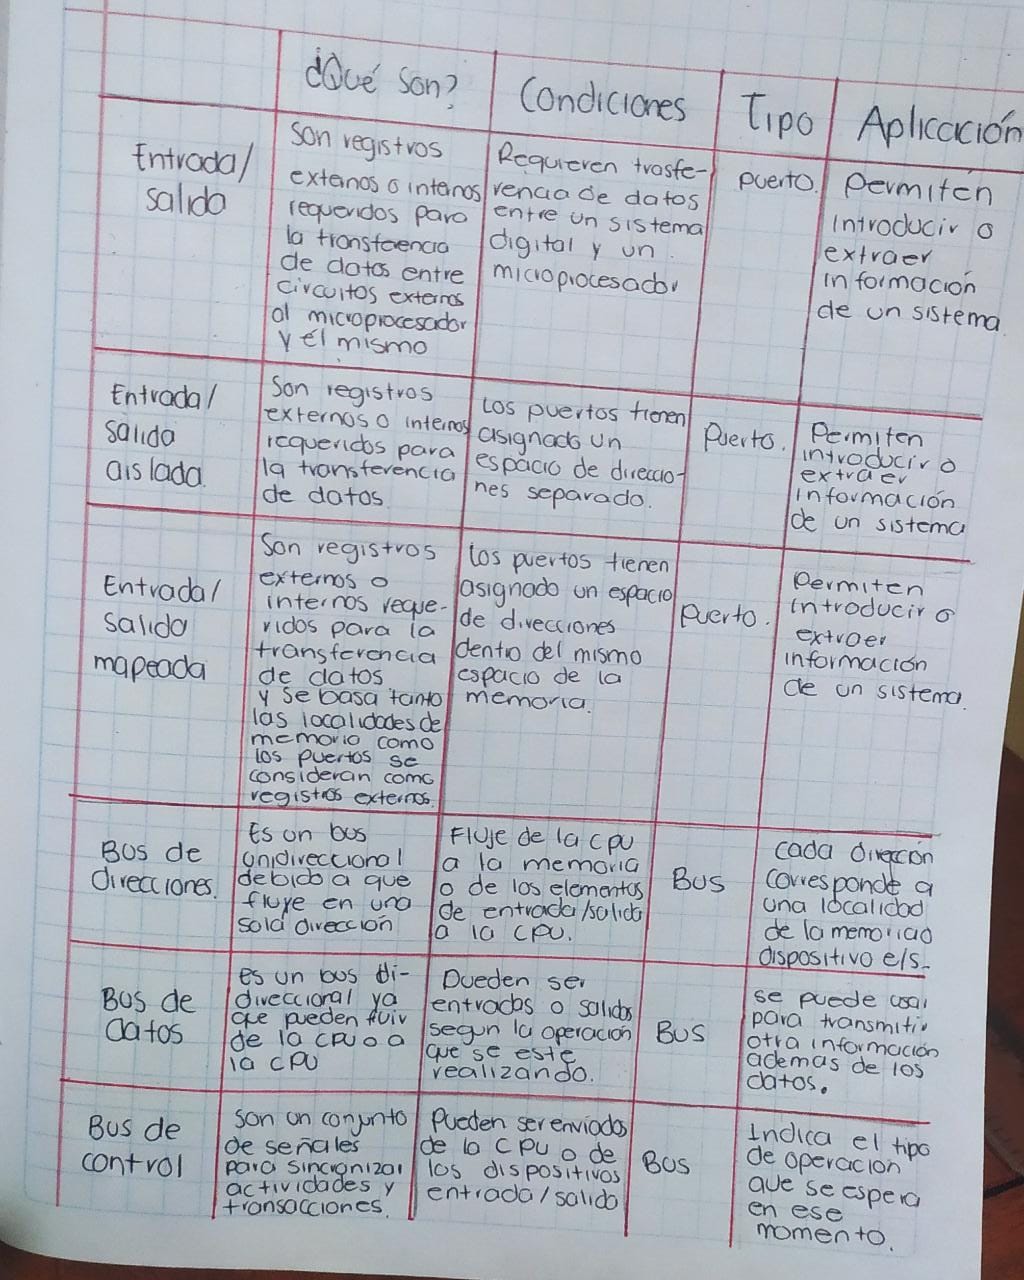 ¿Qué son?
Condiciones
Tipo
Aplicación
Entrada/
salida
Son registros
externos o internos
requeridos para
la transferencia
de datos entre
circuitos externos
al microprocesador
y él mismo
Requieren trasfe-
rencia de datos
entre un sistema
digital y un
microprocesador
puerto.
Permiten
introducir o
extraer
información
de un sistema.
Entrada/
salida
aislada.
Son registros
externos o internos
requeridos para
la transferencia
de datos.
Los puertos tienen
asignado un
espacio de direccio-
nes separado.
Puerto.
Permiten
introducir o
extraer
información
de un sistema
Entrada/
salida
mapeada
Son registros
externos o
internos reque-
ridos para la
transferencia
de datos
y se basa tanto
las localidades de
memoria como
los puertos se
consideran como
registros externos.
Los puertos tienen
asignado un espacio
de direcciones
dentro del mismo
espacio de la
memoria.
Puerto.
Permiten
introducir o
extraer
información
de un sistema.
Bus de
direcciones.
Es un bus
unidireccional
debido a que
fluye en una
sola dirección
Fluje de la cpu
a la memoria
o de los elementos
de entrada/salida
a la CPU.
Bus
cada dirección
corresponde a
una localidad
de la memoria o
dispositivo e/s.
Bus de
datos
es un bus di-
direccional ya
que pueden fluir
de la CPU o a
la CPU
Pueden ser
entradas o salidas
segun la operación
que se este
realizando.
Bus
se puede usar
para transmitir
otra información
ademas de los
datos.
Bus de
control
son un conjunto
de señales
para sincronizar
actividades y
transacciones.
Pueden ser enviados
de la CPU o de
los dispositivos
entrada/salida
Bus
Indica el tipo
de operación
que se espera
en ese
momento.